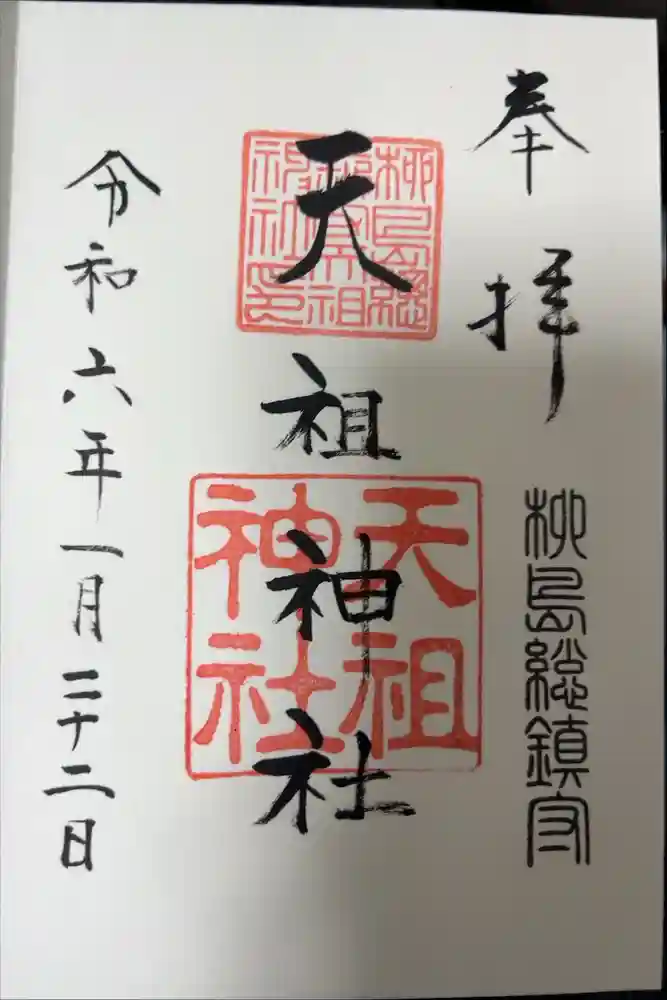 奉拝
柳島総鎮守
天祖神社
柳島総
鎮守天祖
神社印
天祖
神社
令和六年一月二十二日